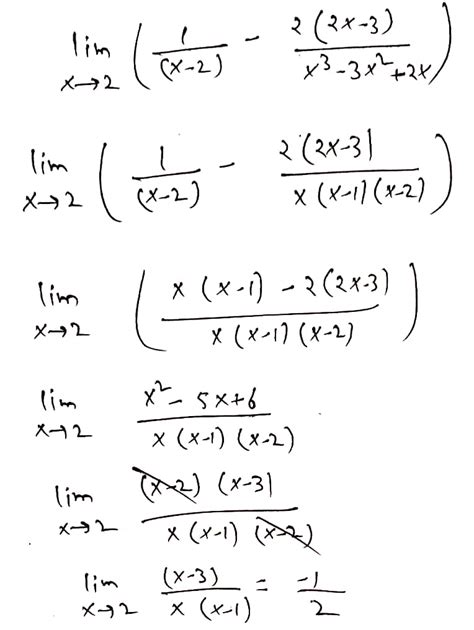 lim x→2 ( 1/(x-2) - 2(2x-3)/(x³-3x²+2x) )
lim x→2 ( 1/(x-2) - 2(2x-3)/(x(x-1)(x-2)) )
lim x→2 ( (x(x-1) - 2(2x-3))/(x(x-1)(x-2)) )
lim x→2 (x²-5x+6)/(x(x-1)(x-2))
lim x→2 ((x-2)(x-3))/(x(x-1)(x-2))
lim x→2 (x-3)/(x(x-1)) = -1/2